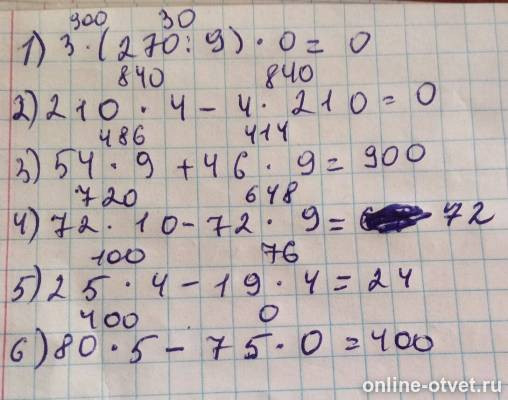 900 30
1) 3 · (270 : 9) · 0 = 0
840 840
2) 210 · 4 - 4 · 210 = 0
486 414
3) 54 · 9 + 46 · 9 = 900
720 648
4) 72 · 10 - 72 · 9 = 72
100 76
5) 25 · 4 - 19 · 4 = 24
400 0
6) 80 · 5 - 75 · 0 = 400
online-otvet.ru